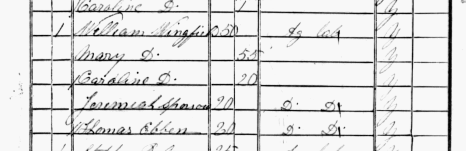 Caroline D. 1 y
1 William Wingfield 50 Ag Lab y
Mary D. 55 y
Caroline D. 20 y
Jeremiah Sparrow 20 D. D. y
Thomas Ebben 20 D. D. y